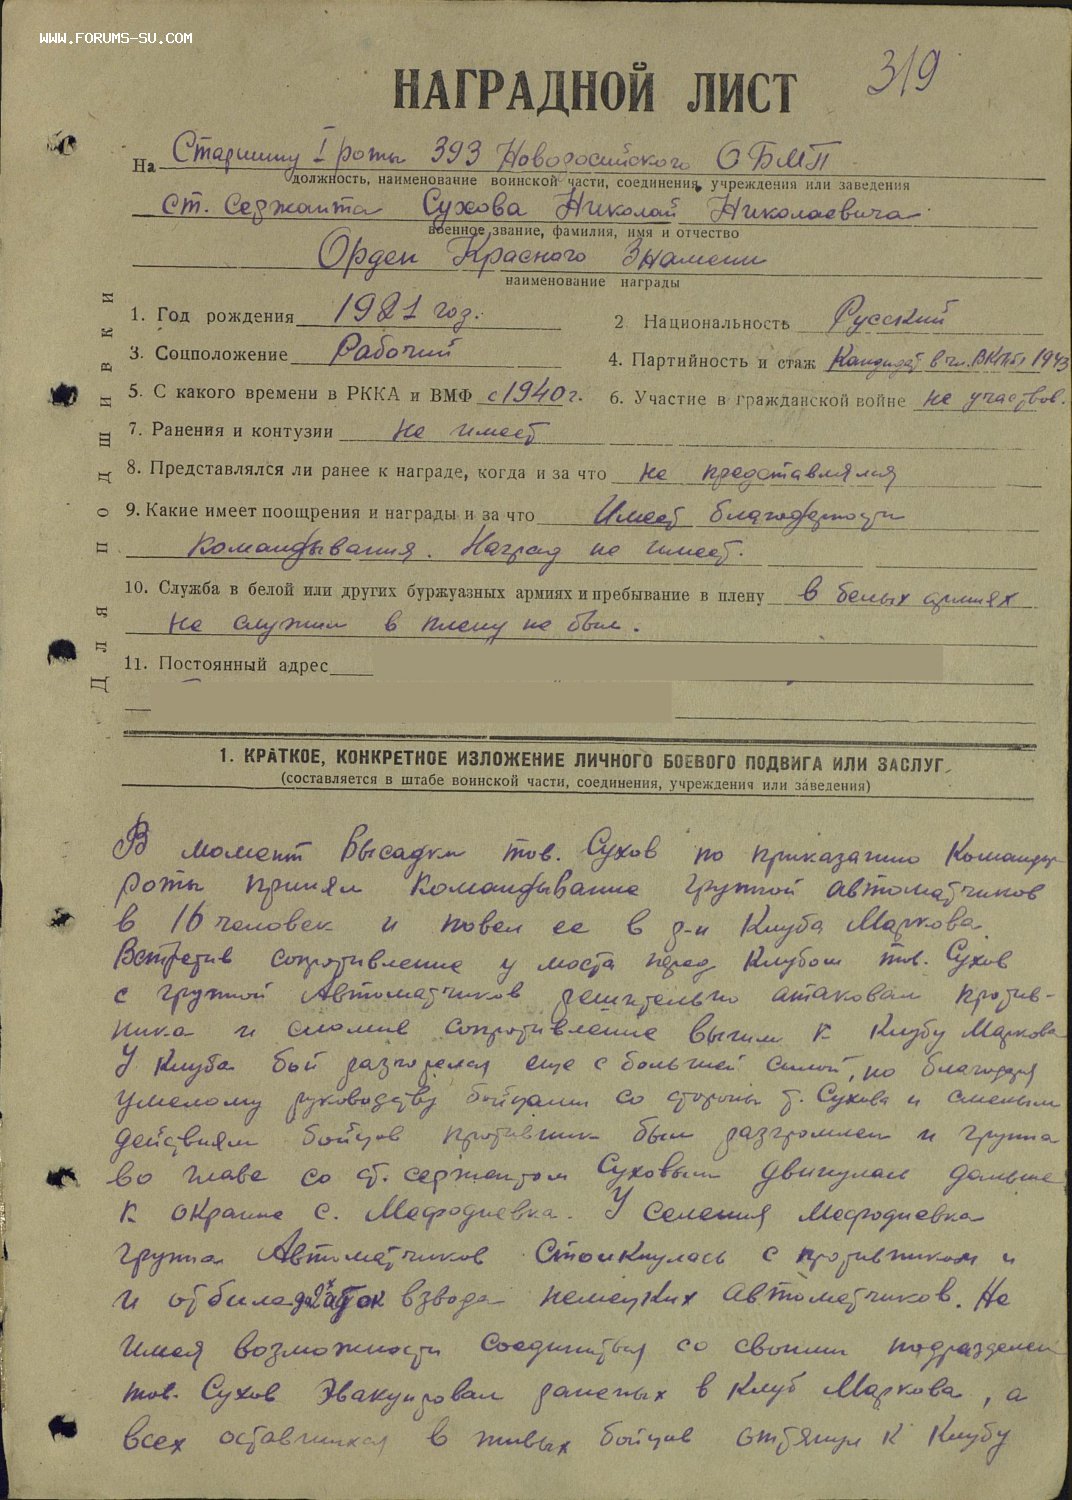 WWW.FORUMS-SU.COM
319
НАГРАДНОЙ ЛИСТ
На Старшину I роты 393 Новоросийского ОБМП
должность, наименование воинской части, соединения, учреждения или заведения
ст. сержанта Сухова Николай Николаевича
военное звание, фамилия, имя и отчество
Орден Красного Знамени
наименование награды
1. Год рождения 1921 год.
2 Национальность Русский
3. Соцположение Рабочий
4. Партийность и стаж Кандидат в чл. ВКПб 1943
5. С какого времени в РККА и ВМФ с 1940 г.
6. Участие в гражданской войне не участвов.
7. Ранения и контузии не имеет
8. Представлялся ли ранее к награде, когда и за что не представлялся
9. Какие имеет поощрения и награды и за что Имеет благодарности
командывания. Наград не имеет.
10. Служба в белой или других буржуазных армиях и пребывание в плену в белых армиях
не служил в плену не был.
11. Постоянный адрес
Для подшивки
1. КРАТКОЕ, КОНКРЕТНОЕ ИЗЛОЖЕНИЕ ЛИЧНОГО БОЕВОГО ПОДВИГА ИЛИ ЗАСЛУГ.
(составляется в штабе воинской части, соединения, учреждения или заведения)
В момент высадки тов. Сухов по приказанию Командира
роты принял командывание группой автоматчиков
в 16 человек и повел ее в р-н Клуба Маркова
Встретив сопротивление у моста перед Клубом тов. Сухов
с группой Автоматчиков решительно атаковал против-
ника и сломив сопротивление вышел к Клубу Маркова
У Клуба бой разгорелся еще с большей силой, но благодаря
умелому руководству бойцами со стороны т. Сухова и смелым
действиям бойцов противник был разгромлен и группа
во главе со ст. сержантом Суховым двинулась дальше
к окраине с. Мефодиевка. У селения Мефодиевка
группа Автоматчиков столкнулась с противником и
и отбила 2х взвода немецких автоматчиков. Не
имея возможности соединиться со своими подразделен
тов. Сухов эвакуировал раненых в Клуб Маркова, а
всех оставшихся в живых бойцов отвянул к Клубу